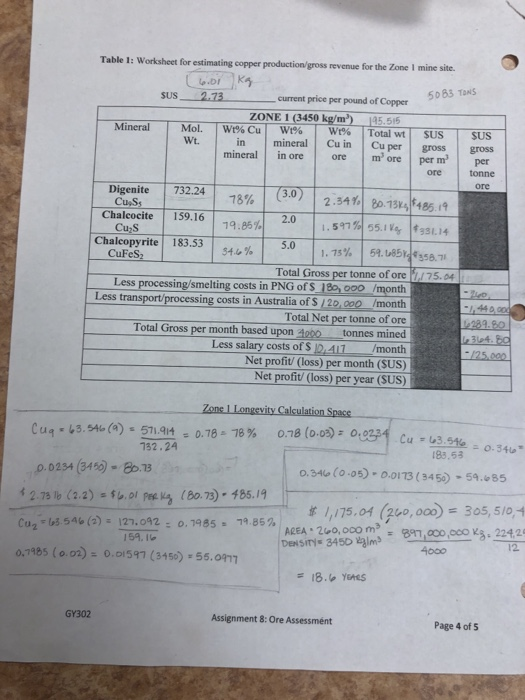 Table 1: Worksheet for estimating copper production/gross revenue for the Zone 1 mine site.
6.01 Kg
$US 2.73 current price per pound of Copper 5083 TONS
ZONE 1 (3450 kg/m³) 195.515
Mineral Mol. Wt. Wt% Cu in mineral Wt% mineral in ore Wt% Cu in ore Total wt Cu per m³ ore $US gross per m³ ore $US gross per tonne ore
Digenite Cu₉S₅ 732.24 78% (3.0) 2.34% 80.73Kg $485.19
Chalcocite Cu₂S 159.16 79.85% 2.0 1.597% 55.1 Kg $331.14
Chalcopyrite CuFeS₂ 183.53 34.6% 5.0 1.73% 59.685Kg $358.71
Total Gross per tonne of ore 1,175.04
Less processing/smelting costs in PNG of $ 180,000 /month
Less transport/processing costs in Australia of $ 120,000 /month -1,440,000
Total Net per tonne of ore
Total Gross per month based upon 4000 tonnes mined
Less salary costs of $ 10,417 /month -125,000
Net profit/ (loss) per month ($US)
Net profit/ (loss) per year ($US)
Zone 1 Longevity Calculation Space
Cu₉ = 63.546 (9) = 571.914 / 732.24 = 0.78 = 78% 0.78 (0.03) = 0.0234
Cu = 63.546 / 183.53 = 0.346=
0.0234 (3450) = 80.73
0.346 (0.05) = 0.0173 (3450) = 59.685
$ 2.73 lb (2.2) = $6.01 PER Kg (80.73) = 485.19
$ 1,175.04 (260,000) = 305,510,4
Cu₂ = 63.546 (2) = 127.092 / 159.16 = 0.7985 = 79.85%
AREA = 260,000 m³
DENSITY = 3450 Kg/m³ = 897,000,000 Kg / 4000 = 224,2 / 12
0.7985 (0.02) = 0.01597 (3450) = 55.0977
= 18.6 YEARS
GY302 Assignment 8: Ore Assessment Page 4 of 5